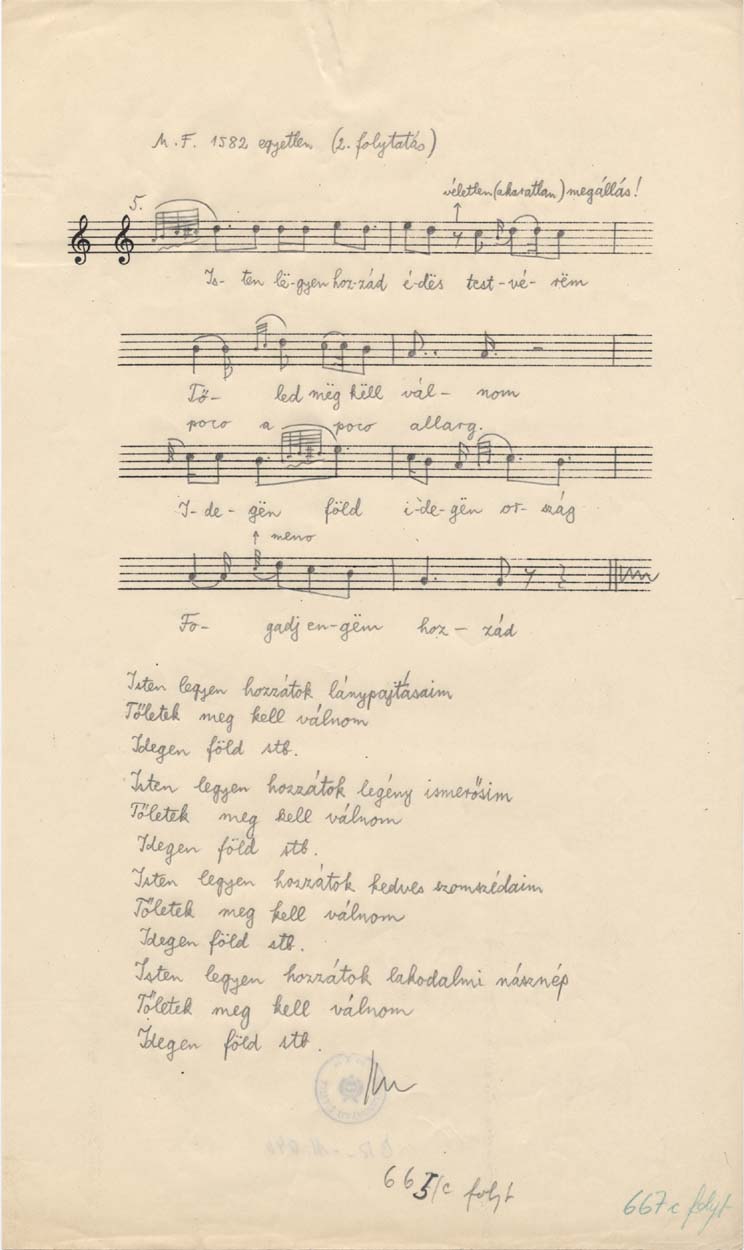 M. F. 1582 egyetlen (2. folytatás)
véletlen (akaratlan) megállás!
5.
Is- ten lë-gyen hoz-zád é-dës test-vé- rëm
Tő- led mëg këll vál- nom
poco a poco allarg.
I-de- gën föld i-de-gën or- szág
meno
Fo- gadj en-gëm hoz- zád
Isten legyen hozzátok lánypajtásaim
Tőletek meg kell válnom
Idegen föld stb.
Isten legyen hozzátok legény ismerősim
Tőletek meg kell válnom
Idegen föld stb.
Isten legyen hozzátok kedves szomszédaim
Tőletek meg kell válnom
Idegen föld stb.
Isten legyen hozzátok lakodalmi násznép
Tőletek meg kell válnom
Idegen föld stb.
665/c folyt
667c folyt